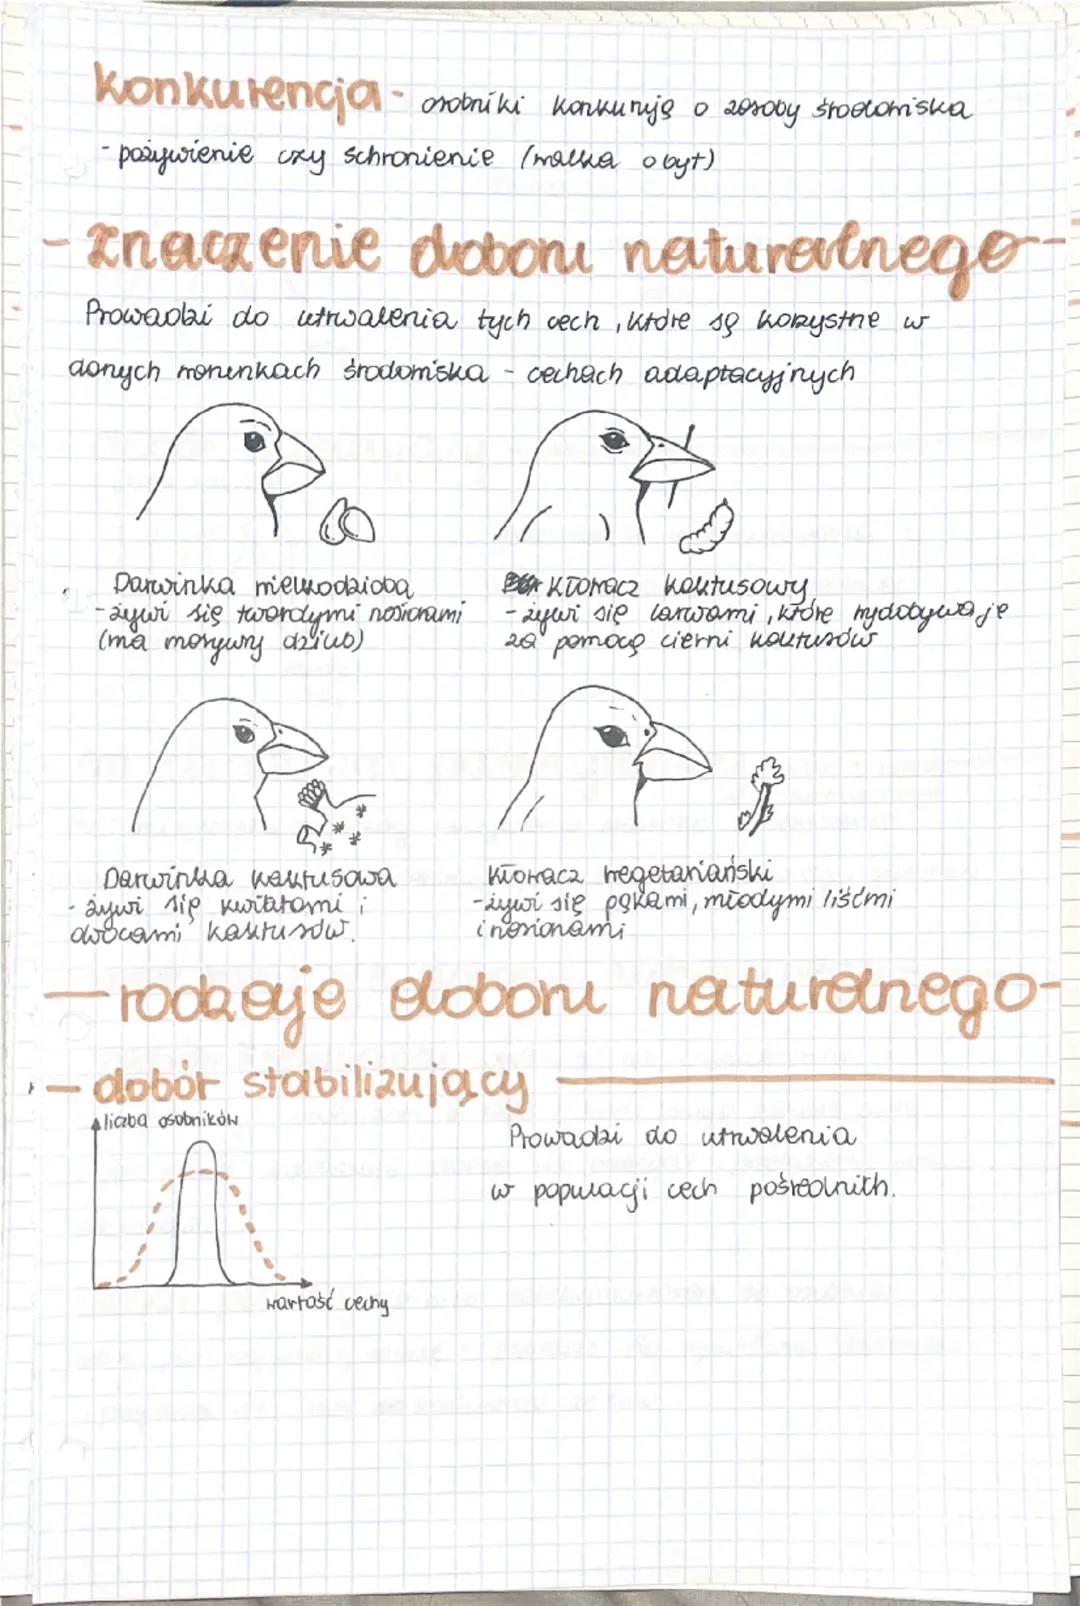 konkurencja - osobniki konkurują o zasoby środowiska
- pożywienie czy schronienie (walka o byt)
- znaczenie doboru naturalnego -
Prowadzi do utrwalenia tych cech, które są korzystne w
danych warunkach środowiska - cechach adaptacyjnych
Darwinka wielkodzioba
- żywi się twardymi nasionami
(ma masywny dziub)
Kłowacz kaktusowy
- żywi się larwami, które wydobywa je
za pomocą cierni kaktusów
Darwinka kaktusowa
- żywi się kwiatami i
owocami kaktusów.
Kłowacz wegetariański
- żywi się pąkami, młodymi liśćmi
i nasionami
- rodzaje doboru naturalnego -
- dobór stabilizujący
liczba osobników
wartość cechy
Prowadzi do utrwalenia
w populacji cech pośrednich.